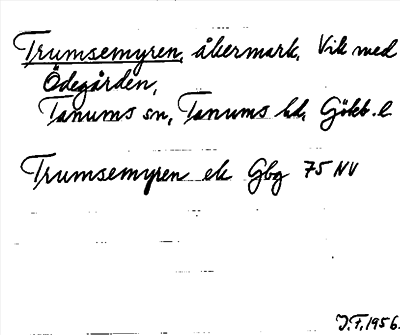 Trumsemyren, åkermark, Vik med
Ödegården,
Tanums sn, Tanums hd, Götkb. l.
Trumsemyren ek Gbg 75 NV
J.F. 1956.